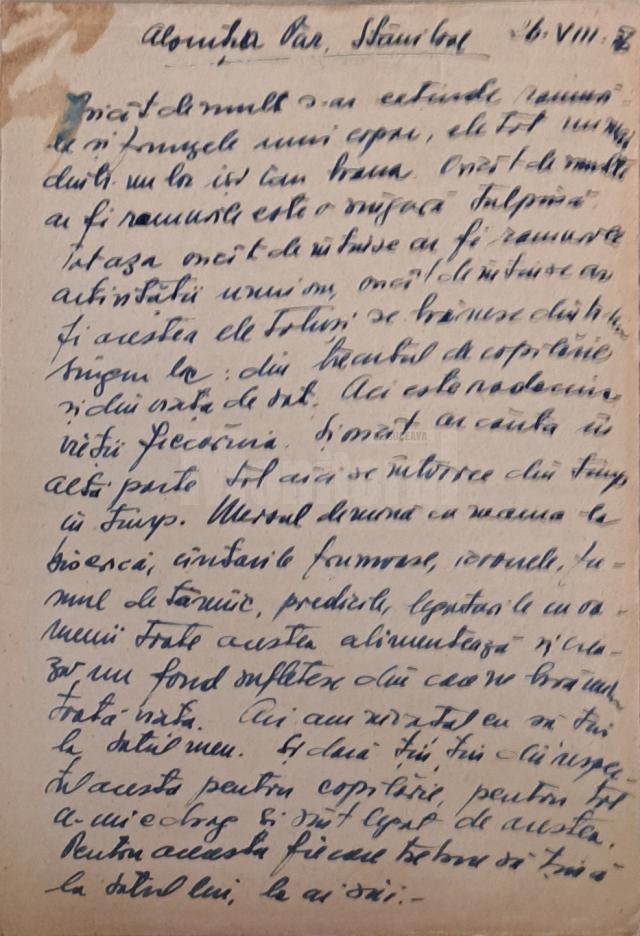 Alocuția Păr. Stăniloae 26.VIII.
Oricât de mult s-ar extinde ramuri-
le și frunzele unui copac, ele tot numai
dintr-un loc își iau hrana. Oricât de multe
ar fi ramurile este o singură tulpină.
Tot așa oricât de întinse ar fi ramurile
activității unui om, oricât de întinse ar
fi acestea ele totuși se hrănesc dintr-un
singur loc: din trecutul de copilărie
și din viața de sat. Aci este rădăcina
vieții fiecăruia. Și oricât ar căuta în
altă parte tot aici se întoarce din timp
în timp. Mersul de mână cu mama la
biserică, cântările frumoase, icoanele, fu-
mul de tămâie, predicile, legăturile cu oa-
menii toate acestea alimentează și cree-
ază un fond sufletesc din care ne hrănim
toată viața. Aci am învățat eu să țin
la satul meu. Și dacă țin, țin din respec-
tul acesta pentru copilărie, pentru tot
ce mi-e drag și sunt legat de acestea.
Pentru aceasta fiecare trebuie să țină
la satul lui, la ai săi.-